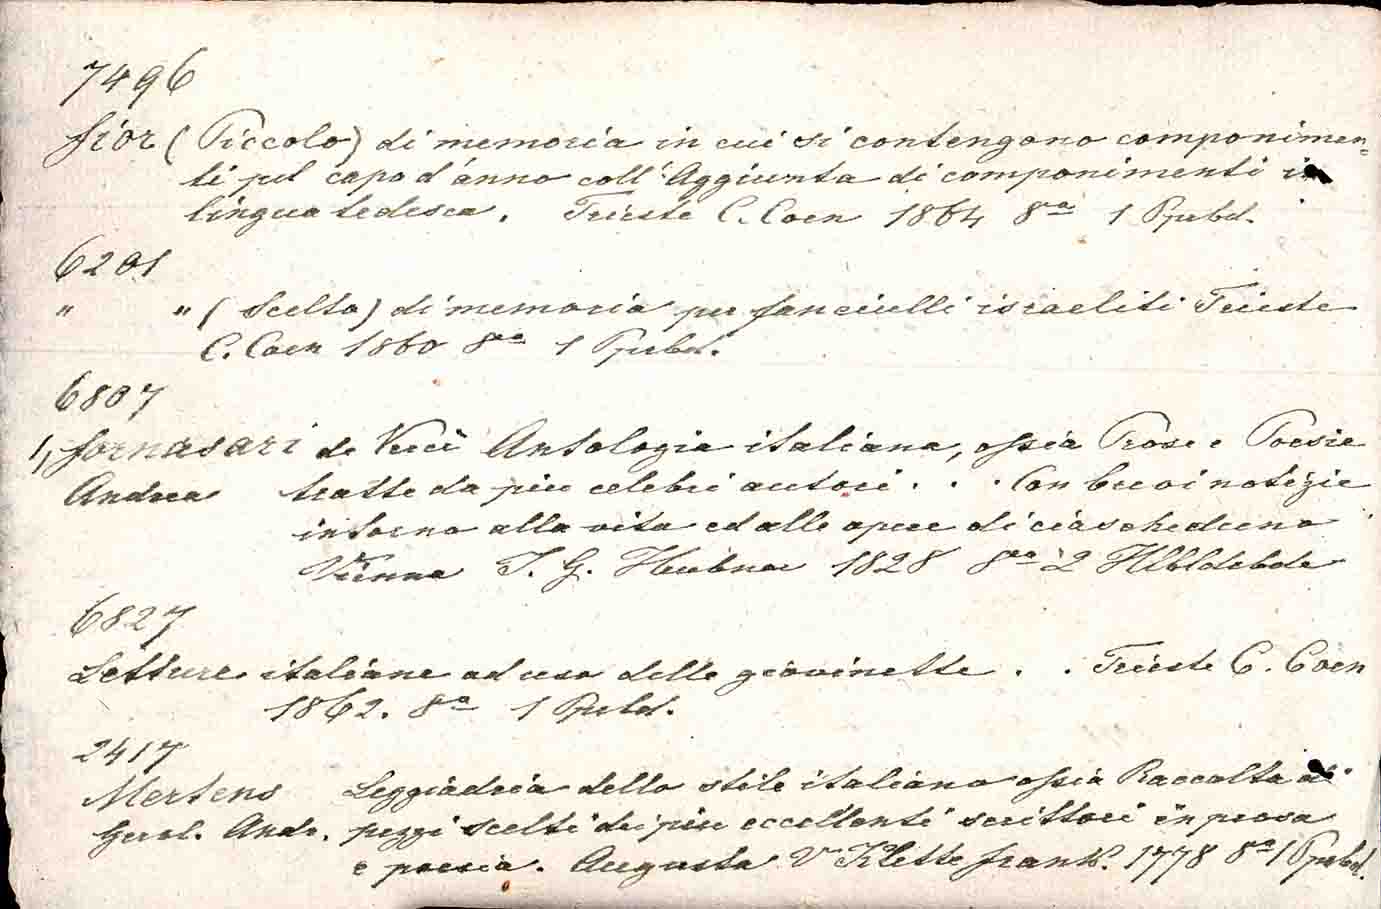 7496
Fior (Piccolo) di memoria in cui si contengono componimen=
ti pel capo d'anno coll' Aggiunta di componimenti in
lingua tedesca. Trieste C. Coen 1864 8vo 1 Ppbd.
6201
" " (Scelto) di memoria per fanciulli israeliti Trieste
C. Coen 1860 8vo 1 Ppbd.
6807
1, Fornasari de Verce Antologia italiana, ossia Prose e Poesie
Andrea tratte da piu celebri autori . . . Con brevi notizie
intorno alla vita ed alle opere di ciascheduno
Vienna J. G. Heubner 1828 8vo 2
6827
Letture italiane ad uso delle giovinette . . Trieste C. Coen
1862. 8o 1 Ppbd.
2417
Mertens Leggiadria dello stile italiano ossia Raccolta di
Gerol. Andr. pezzi scelti dei piu eccellenti scrittori in prosa
e poesia. Augusta V Klette Frank. 1778 8o 1 Ppbd.